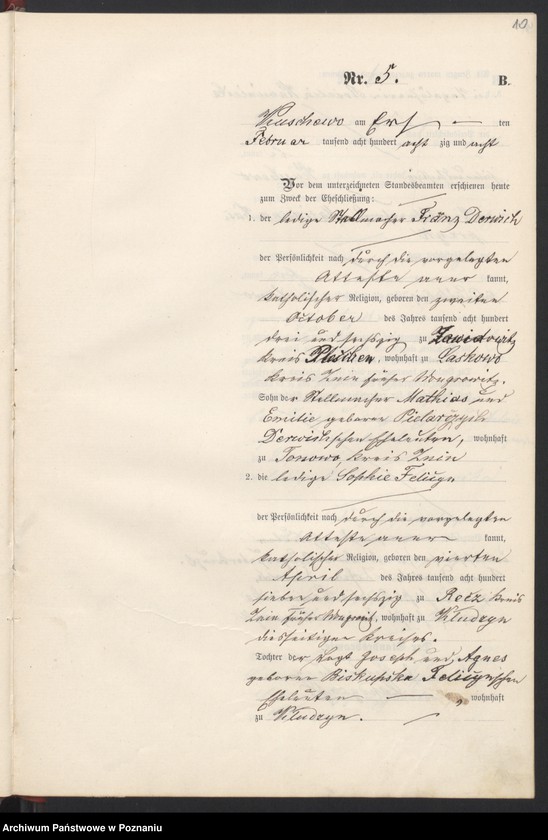 10
Nr. 5. B.
Kuschewo am Ersten
Februar tausend acht hundert acht zig und acht
Vor dem unterzeichneten Standesbeamten erschienen heute
zum Zweck der Eheschließung:
1. der ledige Stellmacher Franz Derwich
der Persönlichkeit nach durch die vorgelegten
Atteste aner kannt,
katholischer Religion, geboren den zweiten
October des Jahres tausend acht hundert
drei und sechszig zu
Kreis Pleschen, wohnhaft zu Laskowo
Kreis Znin früher Wongrowitz.
Sohn der Stellmacher Mathias und
Emilie geborene
Derwichschen Eheleuten, wohnhaft
zu Tonowo, Kreis Znin
2. die ledige Sophie
der Persönlichkeit nach durch die vorgelegten
Atteste aner kannt,
katholischer Religion, geboren den vierten
April des Jahres tausend acht hundert
sieben und sechszig zu Retz Kreis
Znin früher wohnhaft zu Kludzyn
diesseitigen Kreises.
Tochter der Vogt Joseph und Agnes
geborene Biskupska
Eheleuten, wohnhaft
zu Kludzyn.
Archiwum Państwowe w Poznaniu